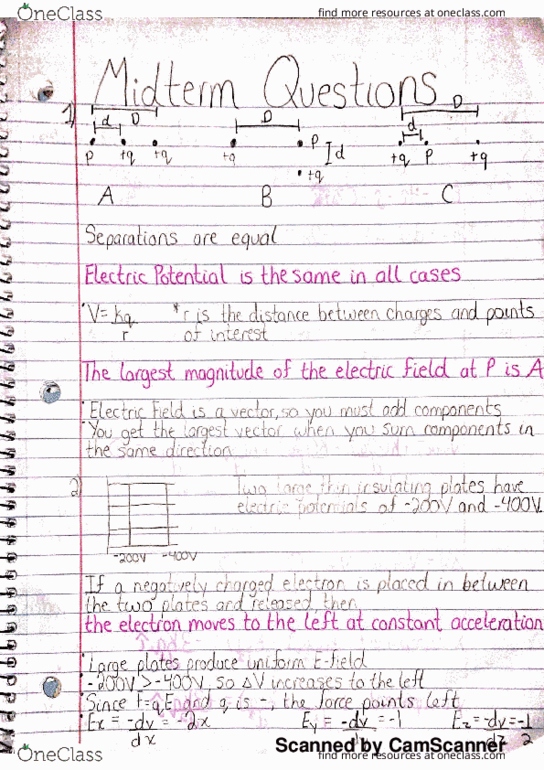 OneClass
find more resources at oneclass.com
Midterm Questions
1)
d D
P +q +q
D
+q P d
+q
D
d
+q P +q
A B C
Separations are equal
Electric Potential is the same in all cases
V = kq
r
*r is the distance between charges and points
of interest
The largest magnitude of the electric field at P is A
Electric Field is a vector, so you must add components
You get the largest vector when you sum components in
the same direction
2)
Two large thin insulating plates have
electric potentials of -200V and -400V.
-200V -400V
If a negatively charged electron is placed in between
the two plates and released, then
the electron moves to the left at constant acceleration
Large plates produce uniform E-field
-200V > -400V, so ΔV increases to the left
Since F=qE and q is -, the force points left
Ex = -dv = -2x Ey = -dv = -1 Ez = -dv = -1
dx dz 2
Scanned by CamScanner
OneClass
find more resources at oneclass.com